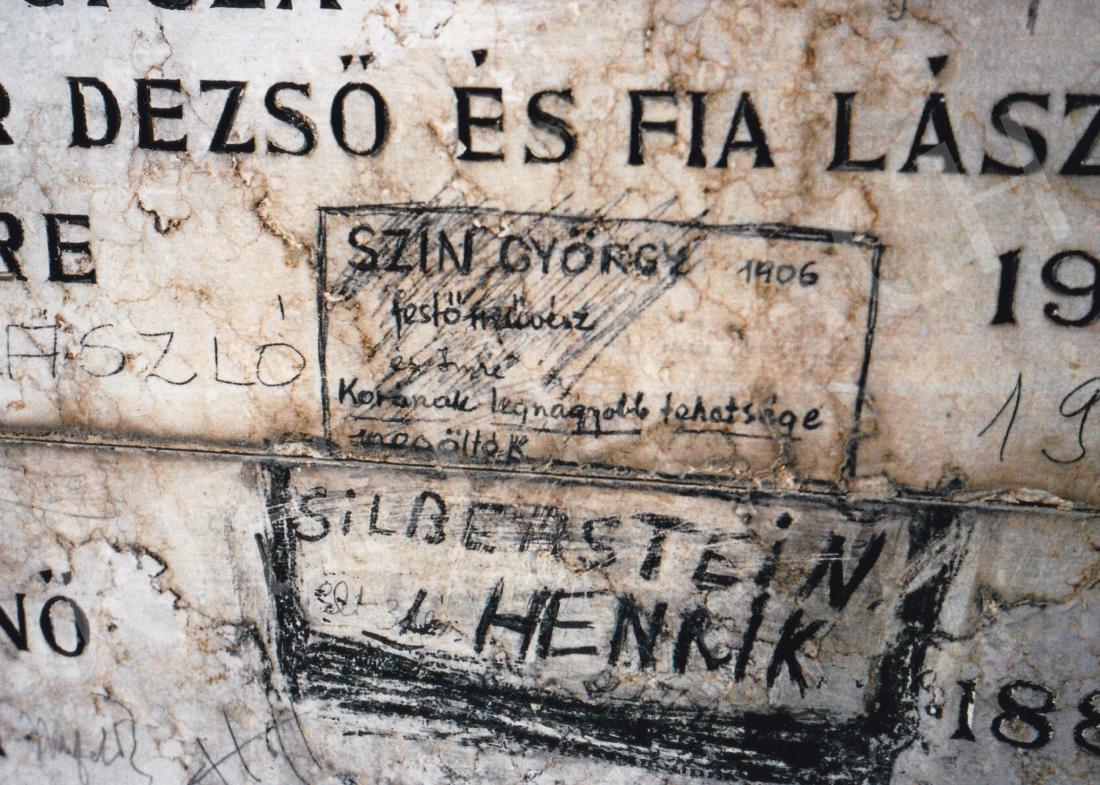 DEZSŐ ÉS FIA LÁSZ
RE
SZIN GYÖRGY 1906
festőművész
és Imre
Korának legnagyobb tehetsége
megölték
19
ÁSZLÓ
19
SILBERSTEIN
HENRIK
NŐ
188